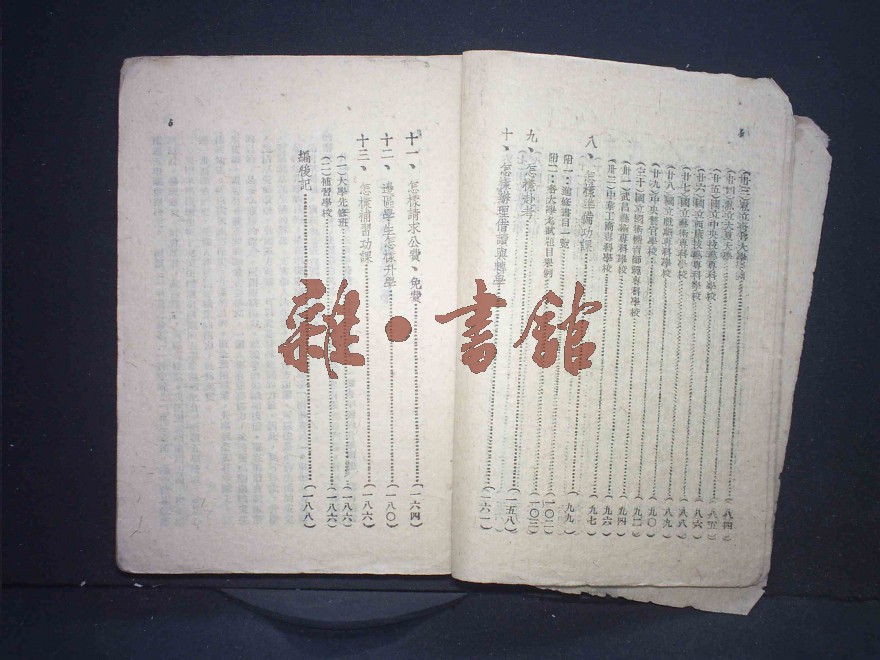 (廿五)國立中央技藝專科學校……(八五)
(廿六)國立西康技藝專科學校……(八六)
(廿七)國立藝術專科學校……(八八)
(廿八)國立體育專科學校……(八九)
(廿九)中央警官學校……(九〇)
(三十)國立國術體育師範專科學校……(九二)
(卅一)武昌藝術專科學校……(九四)
(卅二)中華工商專科學校……(九六)
八、怎樣準備功課……(九七)
附一:應修書目一覽……(九九)
附二:各大學考試題目舉例……(一〇二)
九、怎樣赴考……(一五八)
十、怎樣辦理借讀與轉學……(一六一)
十一、怎樣請求公費、免費……(一六四)
十二、邊區學生怎樣升學……(一八〇)
十三、怎樣補習功課……(一八六)
(一)大學先修班……(一八六)
(二)補習學校……(一八六)
編後記……(一八八)
雜·書館